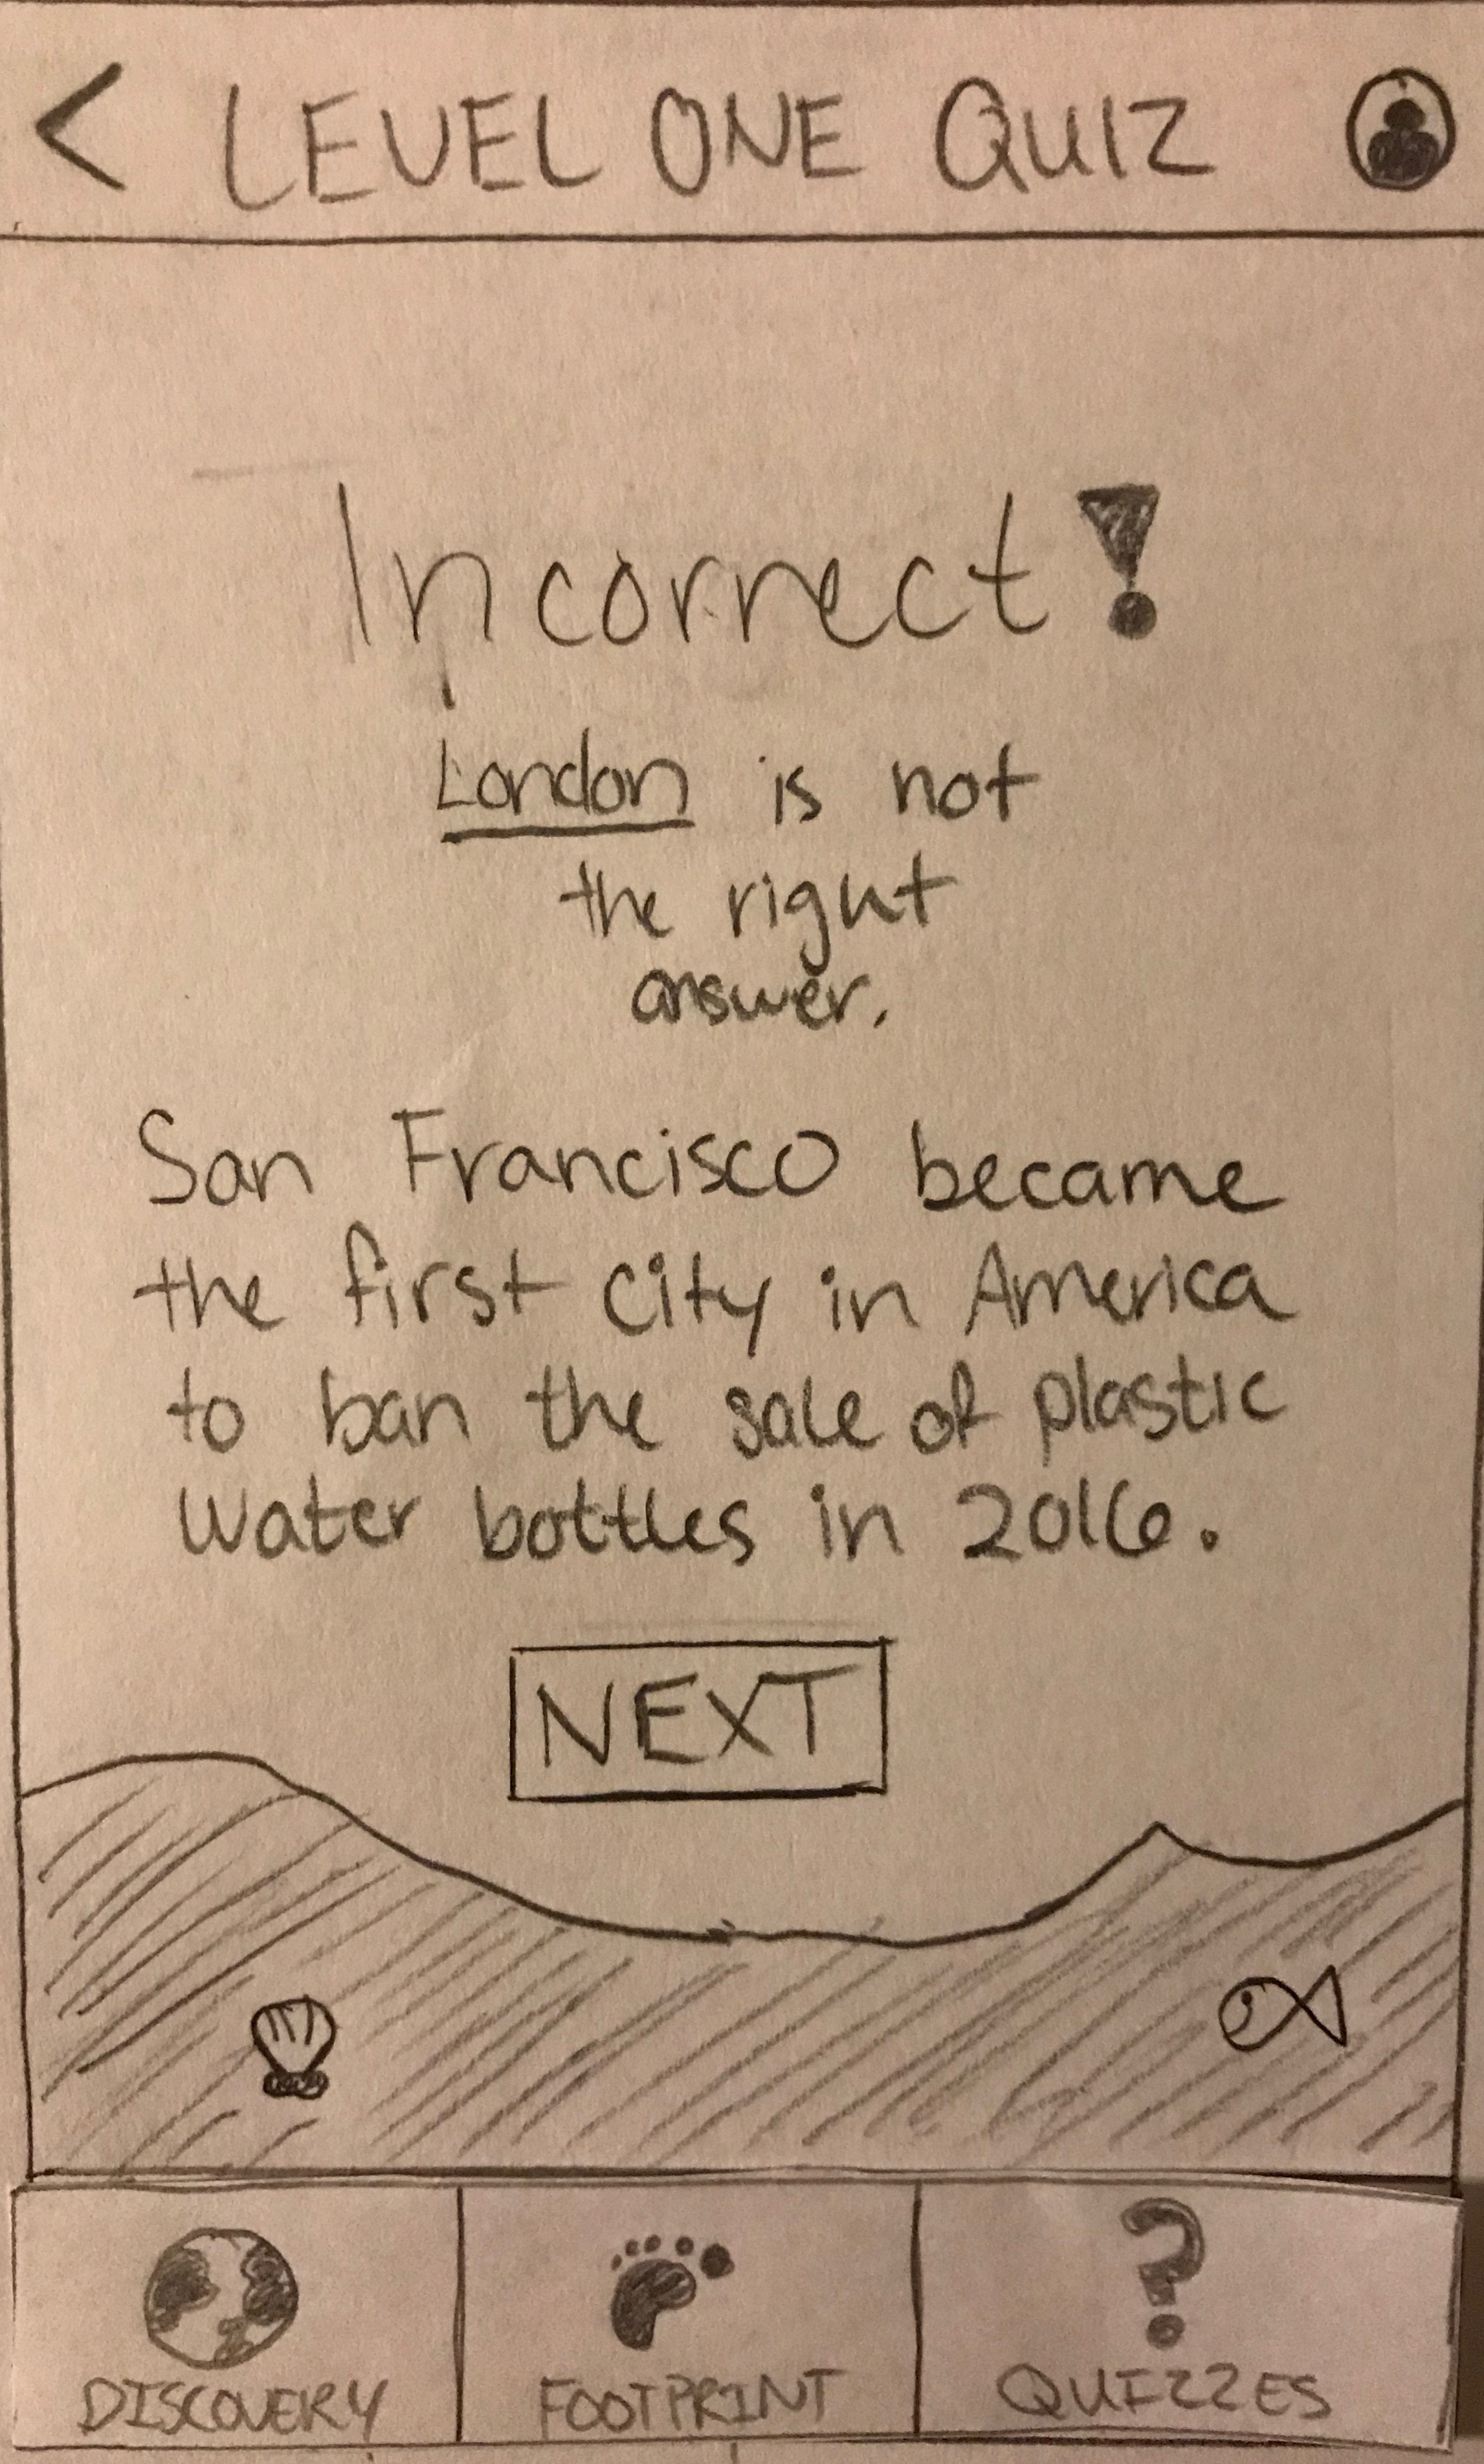 < LEVEL ONE QUIZ
Incorrect!
London is not
the right
answer.
San Francisco became
the first city in America
to ban the sale of plastic
water bottles in 2016.
NEXT
?
DISCOVERY FOOTPRINT QUIZZES